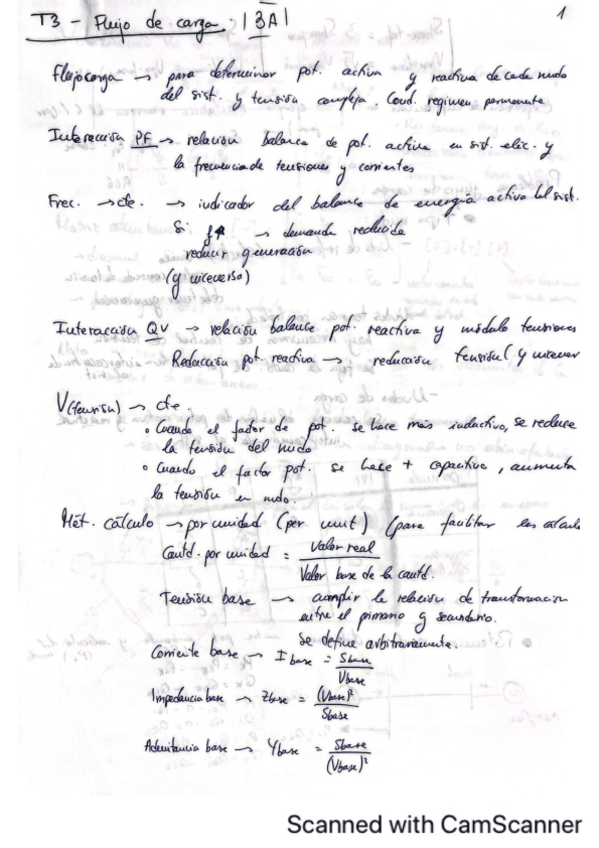 T3 - Flujo de carga : |3A|
1
Flujo carga → para determinar pot. activa y reactiva de cada nudo
del sist. y tensión compleja. Cond. regimen permanente
Interacción PF → relación balance de pot. activa en sist. elec. y
la frecuencia de tensiones y corrientes
Frec. → cte. → indicador del balance de energía activa del sist.
Si f↑ → demanda reducida
reducir generación
(y viceversa)
Interacción QV → relación balance pot. reactiva y módulo tensiones
Reducción pot. reactiva → reducción tensión (y vicever
V(tensión) → cte.
• Cuando el factor de pot. se hace más inductivo, se reduce
la tensión del nudo
• Cuando el factor pot. se hace + capacitivo, aumenta
la tensión en nudo.
Mét. cálculo → por unidad (per unit) (para facilitar los cálculo
Cantd. por unidad = Valor real
Valor base de la cantd.
Tensión base → cumplir la relación de transformación
entre el primario y secundario.
Se define arbitrariamente.
Corriente base → Ibase = Sbase
Vbase
Impedancia base → Zbase = (Vbase)²
Sbase
Admitancia base → Ybase = Sbase
(Vbase)²
Scanned with CamScanner